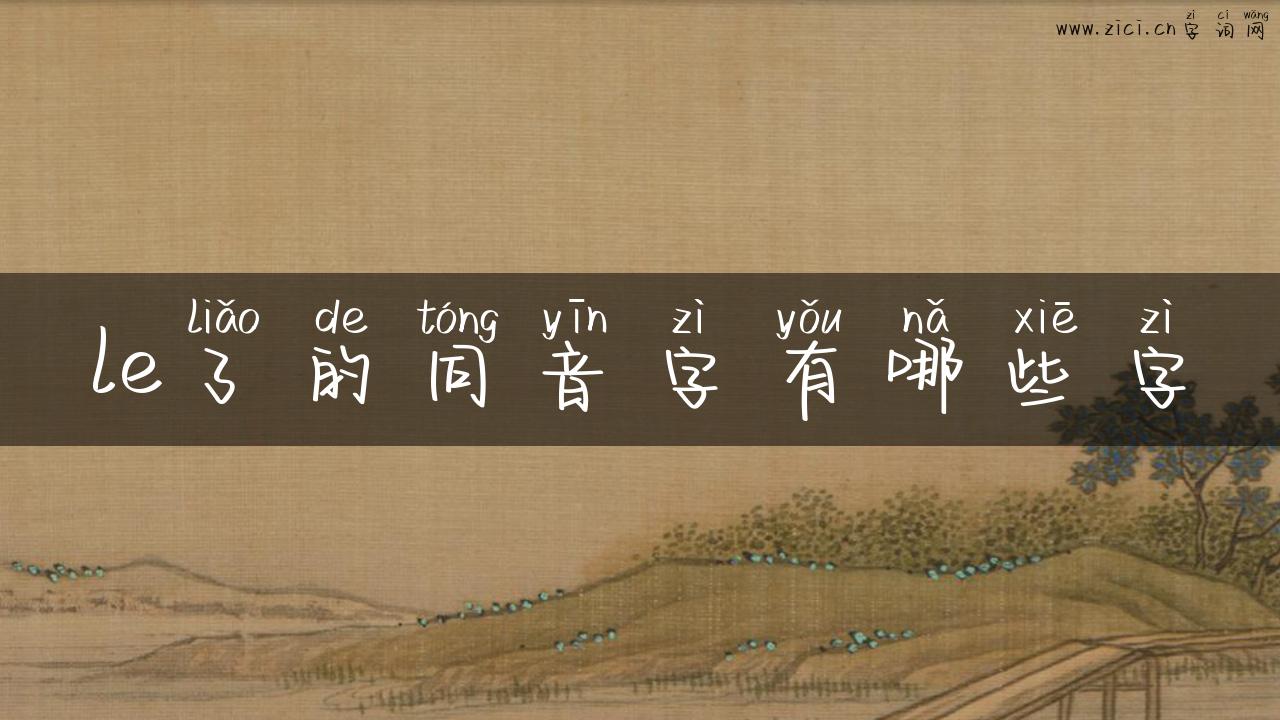 zì cí wǎng
www.zici.cn字词网
liǎo de tóng yīn zì yǒu nǎ xiē zì
le了的同音字有哪些字